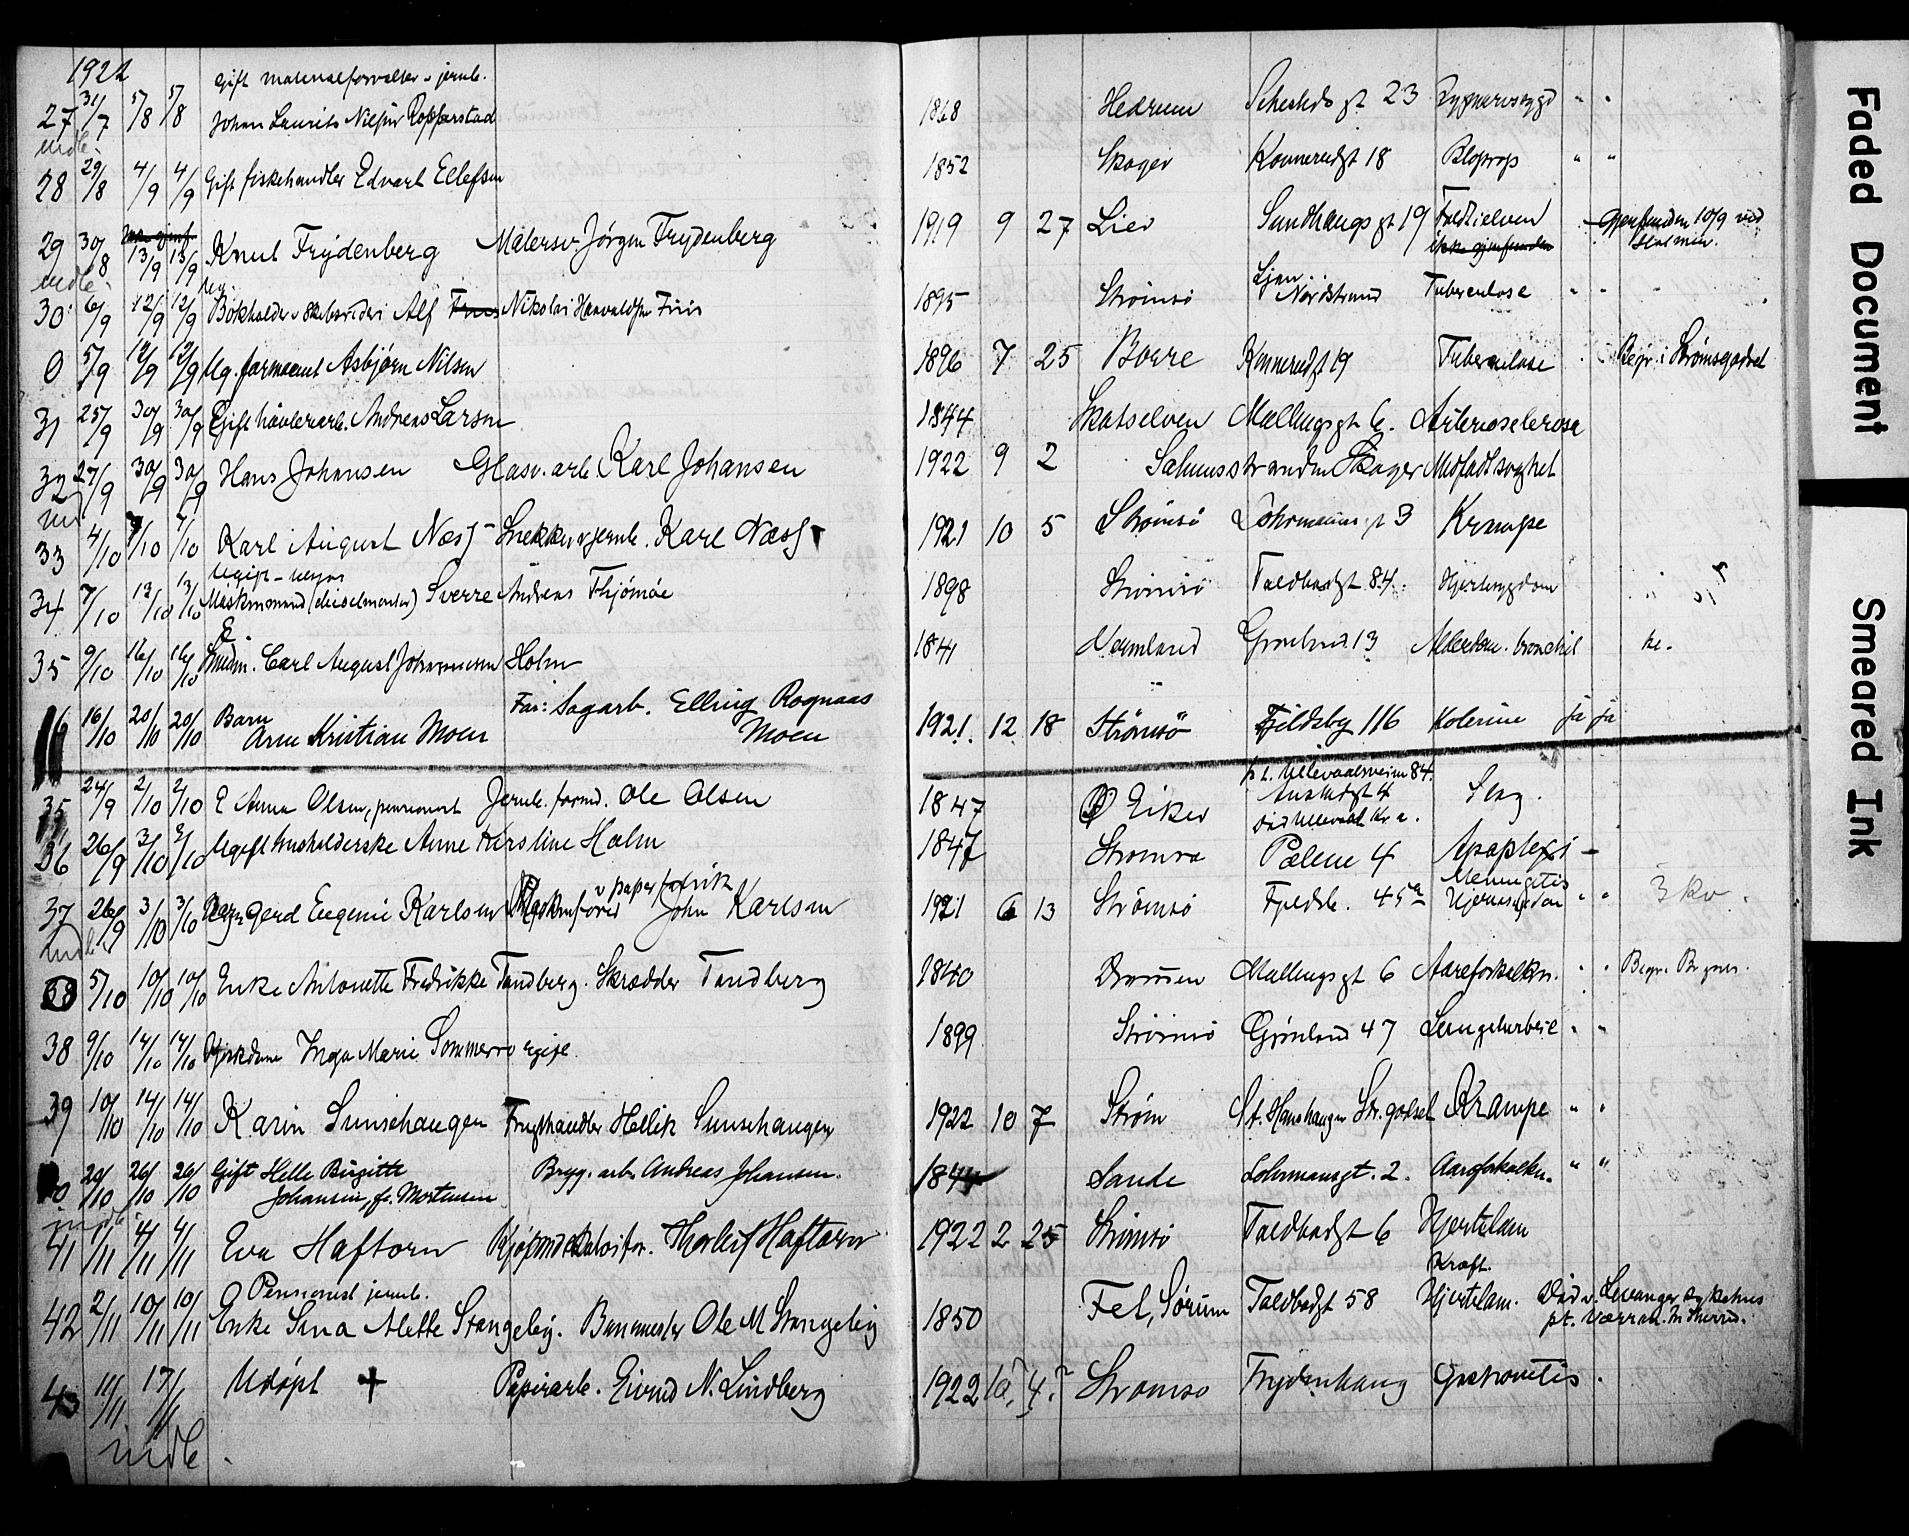 1922
Gift materialforvalter v jernb.
27 31/7 5/8 5/8 Johan Laurits Nilsen Ropperstad 1868 Hedrum Schesteds gt 23 Rygmarvssygd " "
indb.
28 29/8 4/9 4/9 Gift fiskehandler Edvart Ellefsen 1852 Skoger Konnerudgt 18 Bloprop " "
29 30/8 13/9 13/9 Knut Frydenberg Malersv. Jørgen Frydenberg 1919 9 27 Lier Sundhaugs gt 19 Faldt i elven ikke gjenfunden Gjenfunden 10/9 ved Holmen.
indb.
30 6/9 12/9 12/9 Bokholder v Skibsrederi Alf Friis Nikolai Haavaldsen Friis 1895 Strømsø Ljan Nordstrand Tuberculose " "
0 5/9 12/9 12/9 Ug. farmaceut Asbjørn Nilsen 1896 7 25 Borre Konnerudgt 19 Tuberculose Begr. i Strømsgodset
31 25/9 30/9 30/9 Gift høvleriarb. Andreas Larsen 1844 Skotselven Mællingsgt 6. Arteriosclerose
32 27/9 30/9 30/9 Hans Johansen Glasv. arb. Karl Johansen 1922 9 2 Solumsstranden Skoger Medfødt svaghet
33 4/10 7/10 7/10 Karl August Næss Snekker v jernb. Karl Næss 1921 10 5 Strømsø Lohrmanns gt 3 Krampe
Ugift
34 7/10 13/10 13/10 Maskinmand (dieselmontør) Sverre Andreas Thjømøe 1898 Strømsø Toldbodgt 84. Hjertesygdom
E.
35 9/10 16/10 16/10 Carl August Johannessen Holm 1841 Vermland Grønland 13 Alderdom. bronchit
16/10 20/10 20/10 Barn Arne Kristian Moen Far: Sagarb. Elling Rognaas Moen 1921. 12 18 Strømsø Fjeldsby 116 Kolerine ja ja
35 24/9 2/10 2/10 E Anna Olsen, pensionert Jernb. formd. Ole Olsen 1847 Ø Eiker p.t. Ullevaalsveien 84. Slag.
36 26/9 3/10 3/10 Ugift husholderske Anne Kirstine Holm 1847 Strømsø Pælene 4 Apoplexi
37 26/9 3/10 3/10 Gerd Eugenie Karlsen Maskinfører v papirfabrik John Karlsen 1921 6 13 Strømsø Fjeldsb. 45a Meningitis Hjernesygdom " " 3 kv.
indb.
38 5/10 10/10 10/10 Enke Antonette Fredrikke Tandberg. Skrædder Tandberg 1840 Drammen Mællingsgt 6 Aareforkalkn. " " Begr. Bragnes.
38 9/10 14/10 14/10 Inga Marie Sommerro ugift. 1899 Strømsø Grønland 47 Lungebetændelse " "
39 10/10 14/10 14/10 Karin Sunsehaugen Frugthandler Hellik Sunsehaugen 1922 10 7 Strøm St. Hanshaugen Str. godset Krampe " "
40 20/10 26/10 26/10 Gift Helle Birgitte Johansen, f. Mortensen Brygg. arb. Andreas Johansen. 1844 Sande Lohrmansgt. 2. Aareforkalkn. " "
indb.
41 1/11 4/11 4/11 Eva Haftorn Thorleif Haftorn 1922 2 25 Strømsø Toldbodgt 6 Hjertelam
Pensionist jernb. Kræft.
42 2/11 10/11 10/11 Enke Sina Alette Stangeby. Banemester Ole M Stangeby 1850 Fet, Sørum Toldbodgt 58 Hjertelam. Død v. Levanger sykehus
43 11/11 17/11 Udøpt + Papirarb. Eivind N. Lindberg 1922 10 4? Strømsø Frydenhaug Gastroenteritis
indb.
Faded Document
Smeared Ink